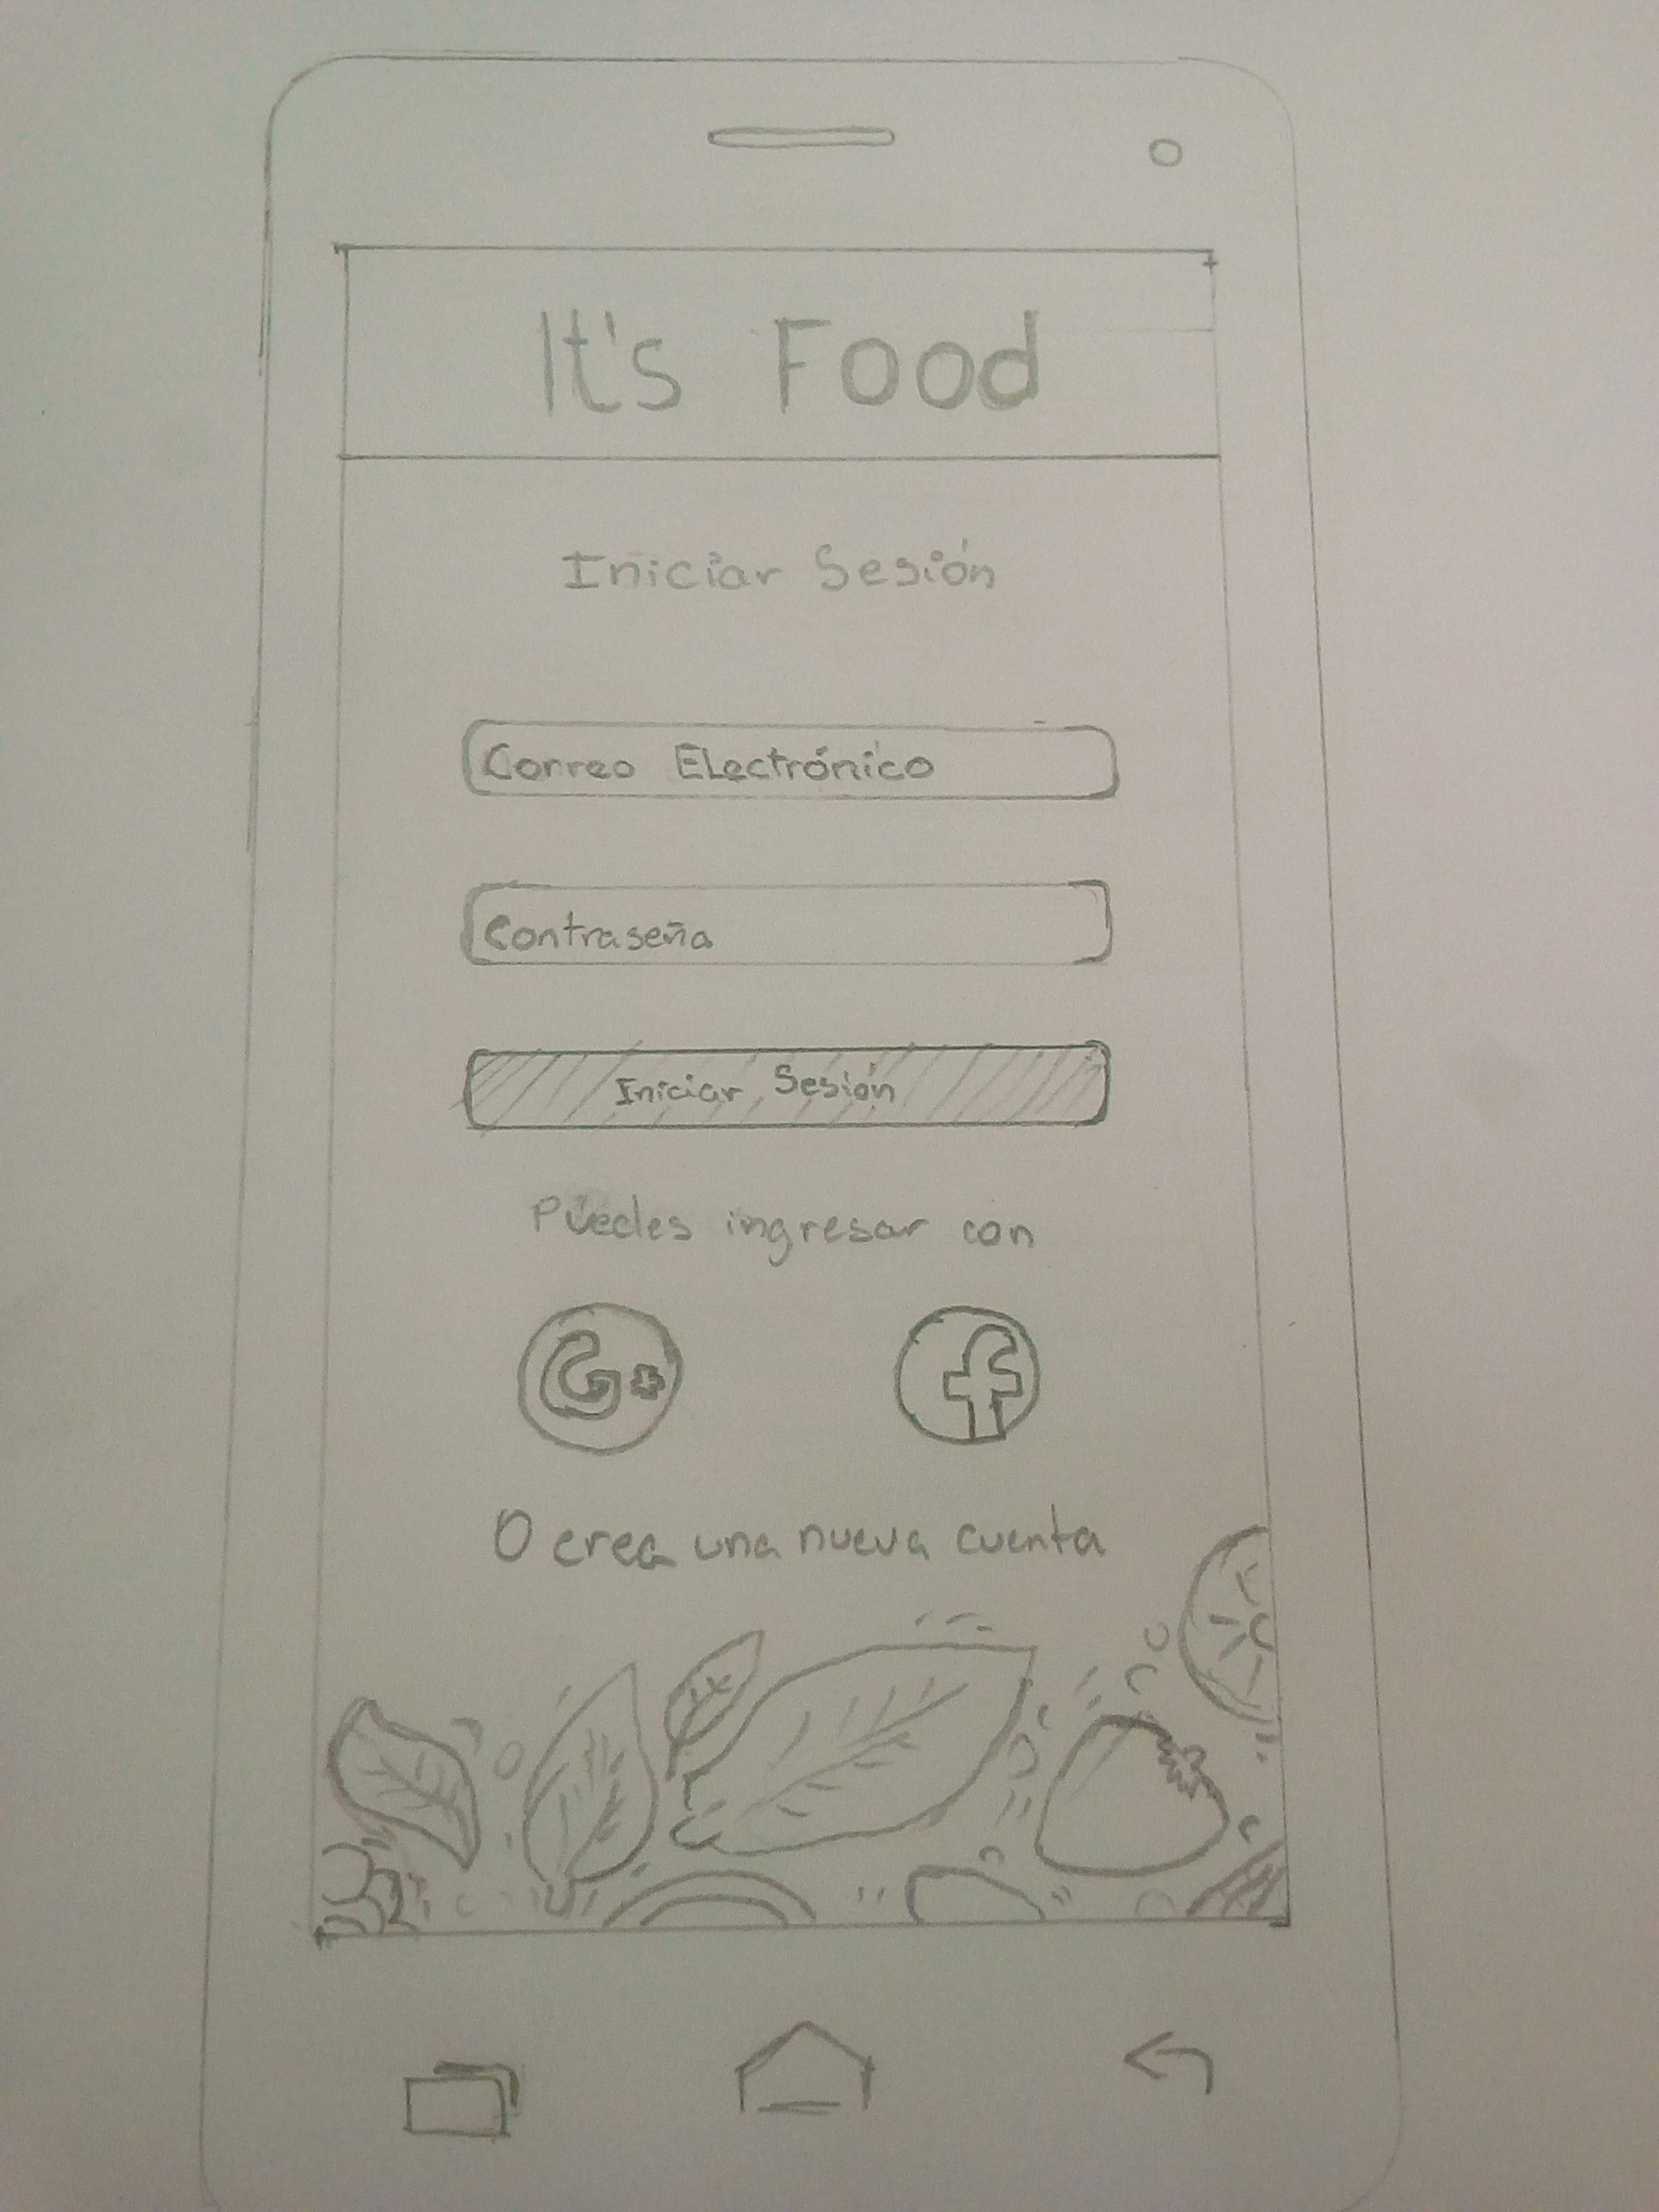 It's Food
Iniciar Sesión
Correo Electrónico
Contraseña
Iniciar Sesión
Puedes ingresar con
G+ f
O crea una nueva cuenta